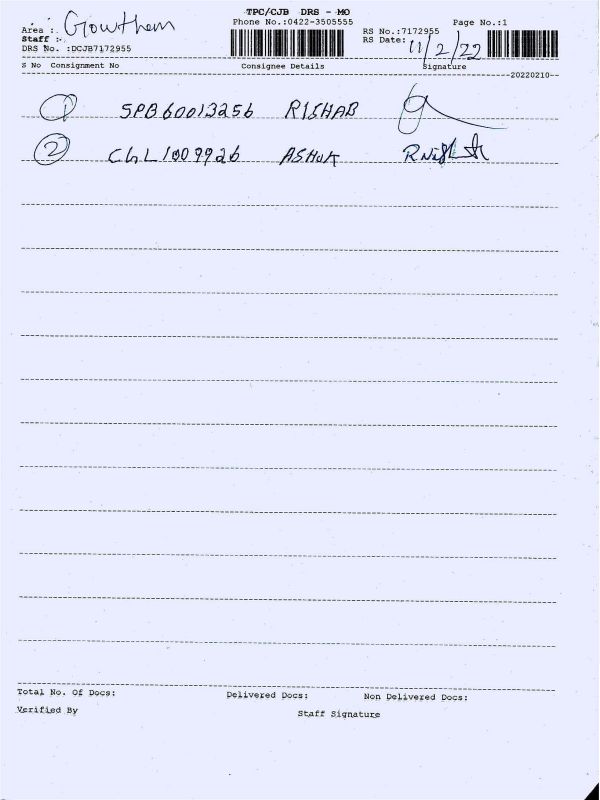 TPC/CJB DRS - MO
Area : Gowthem
Phone No.:0422-3505555
RS No.:7172955
Page No.:1
Staff :
RS Date: 11/2/22
DRS No. :DCJB7172955
S No Consignment No Consignee Details Signature
20220210
1 SPB60013256 RISHAB
2 CHL1009926 ASHOK
Total No. Of Docs: Delivered Docs: Non Delivered Docs:
Verified By Staff Signature